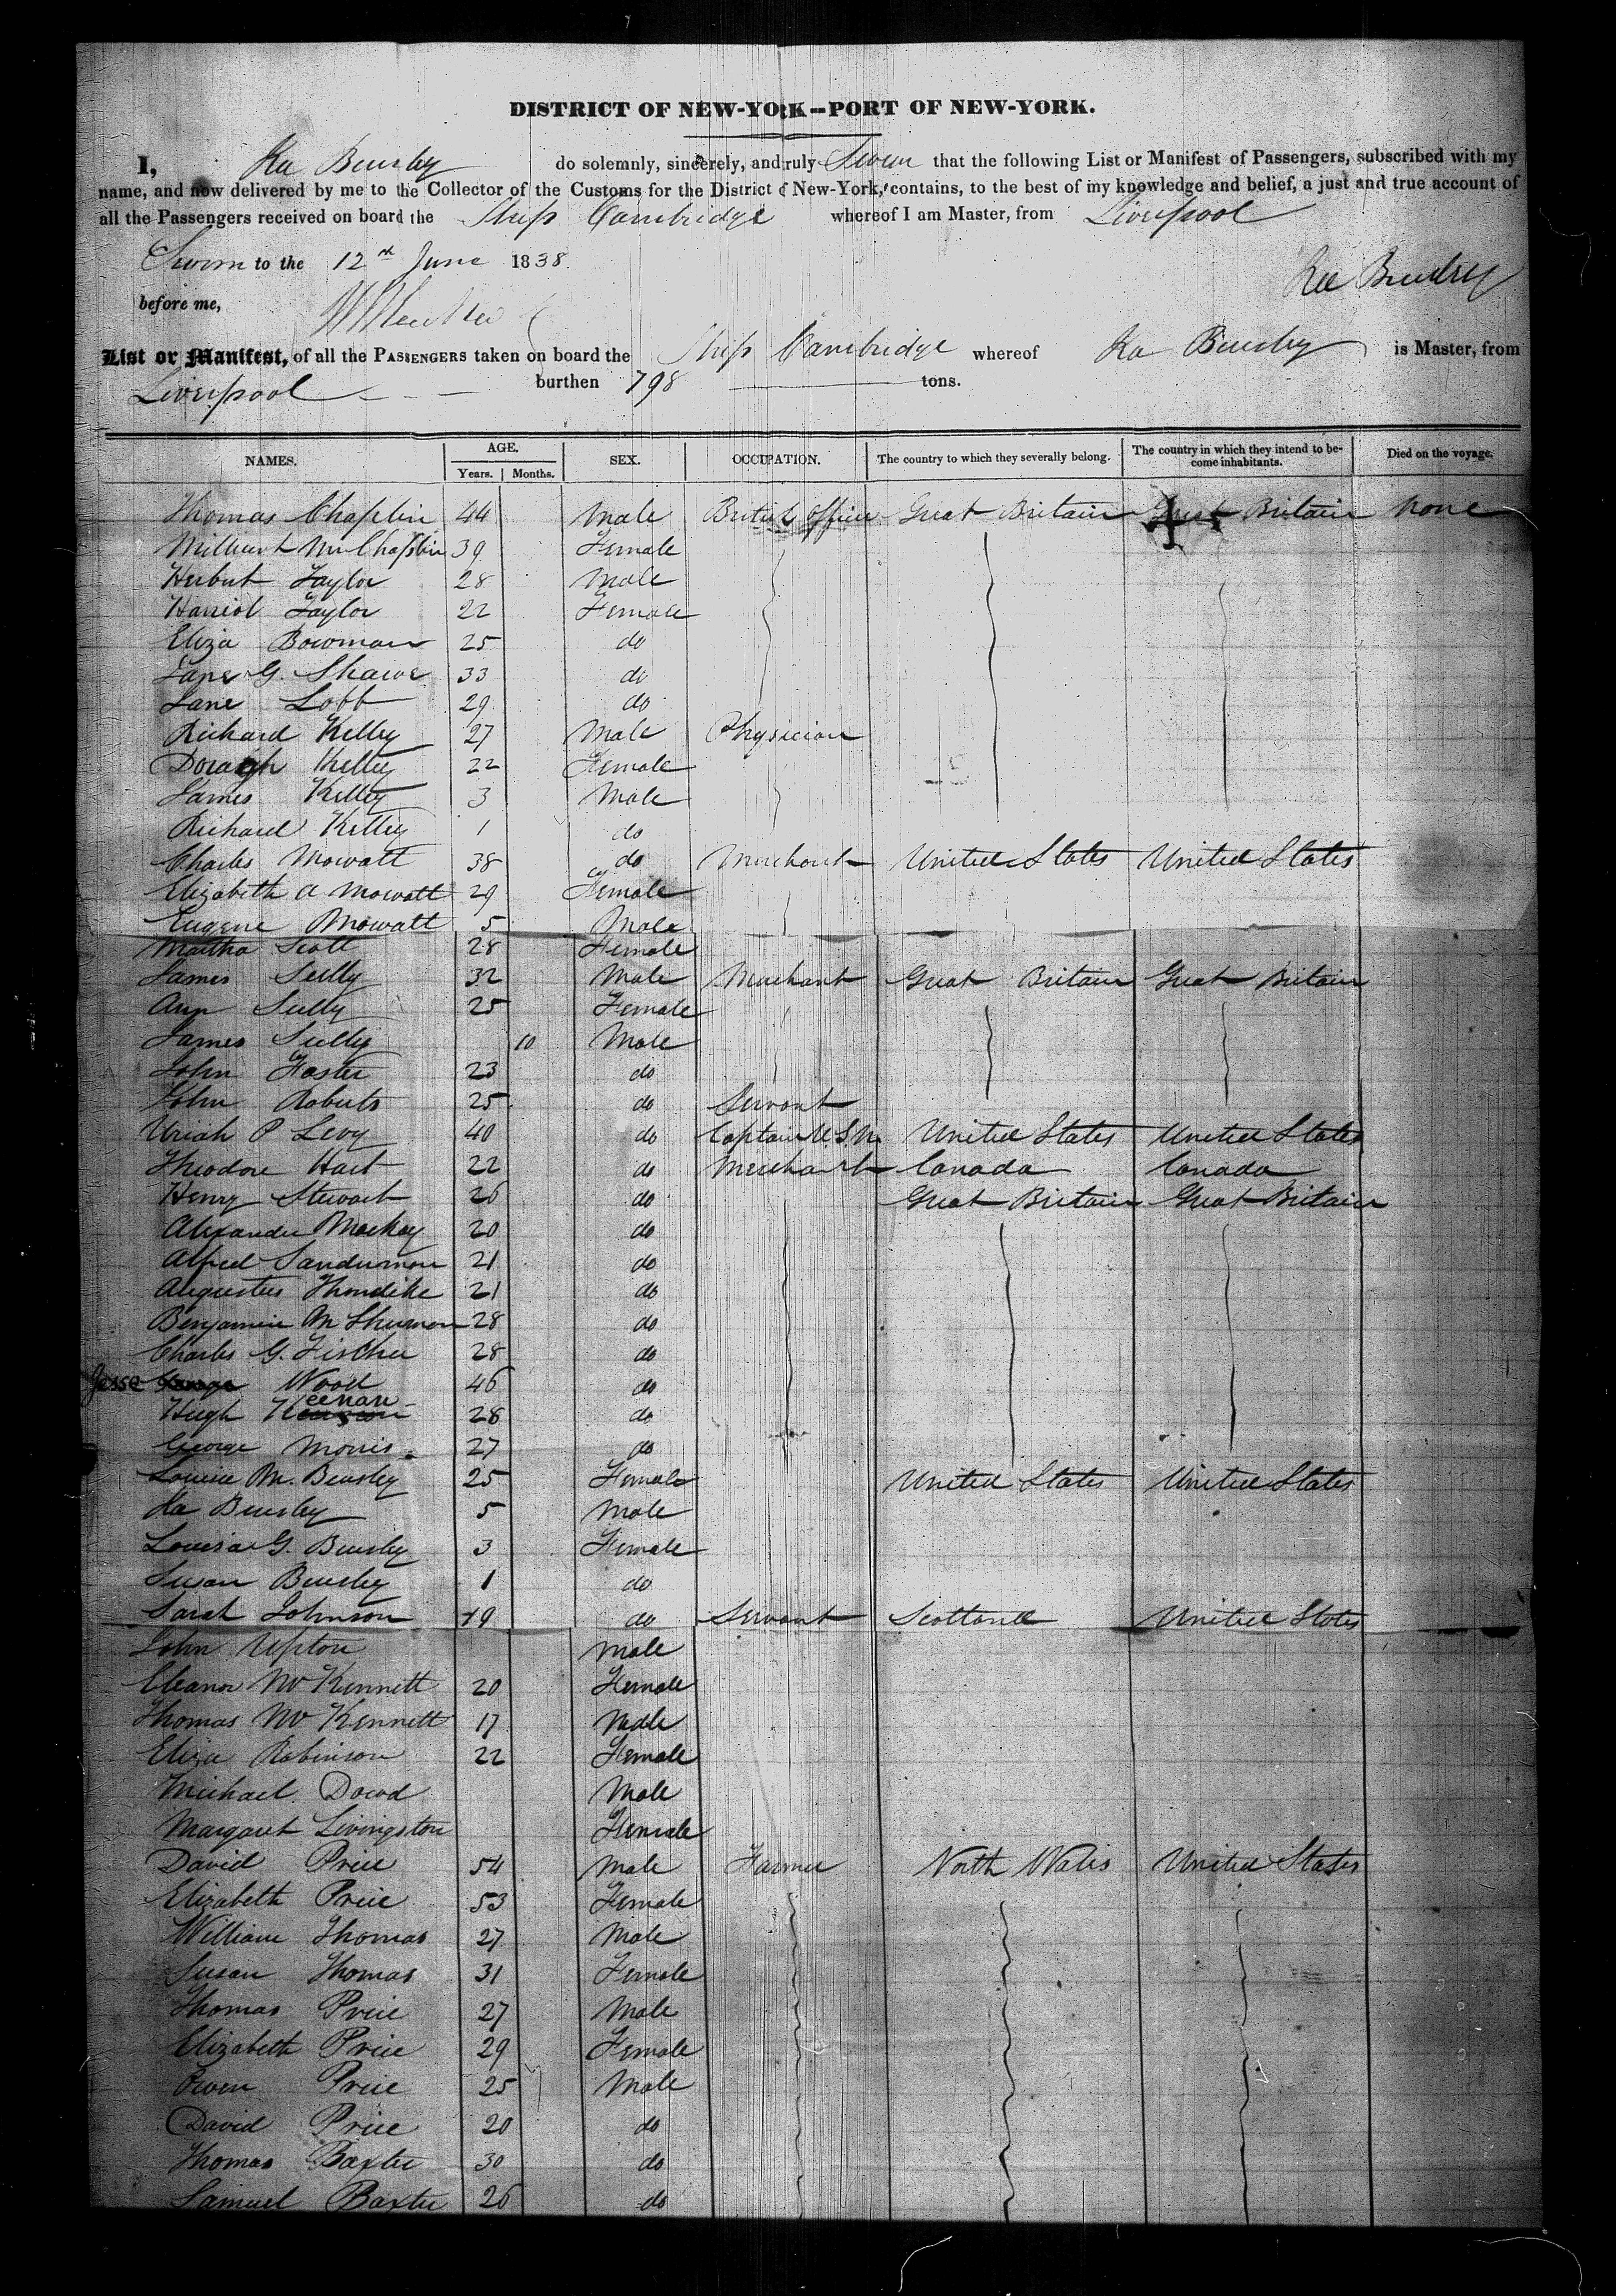 DISTRICT OF NEW-YORK--PORT OF NEW-YORK.
I, Ira Bursley do solemnly, sincerely, and truly Swear that the following List or Manifest of Passengers, subscribed with my
name, and now delivered by me to the Collector of the Customs for the District of New-York, contains, to the best of my knowledge and belief, a just and true account of
all the Passengers received on board the Ship Cambridge whereof I am Master, from Liverpool
Sworn to the 12th June 1838
Ira Bursley
before me,
List or Manifest, of all the PASSENGERS taken on board the Ship Cambridge whereof Ira Bursley is Master, from
Liverpool burthen 798 tons.
NAMES. AGE. Years. Months. SEX. OCCUPATION. The country to which they severally belong. The country in which they intend to become inhabitants. Died on the voyage.
Thomas Chaplin 44 Male British Officer Great Britain Great Britain None
Chaplin 39 Female
Herbert Taylor 28 Male
Harriot Taylor 22 Female
Eliza Bowman 25 do
Jane G. Shawe 33 do
Jane Lobb 29 do
Richard Kelley 27 Male Physician
Kelley 22 Female
James Kelley 3 Male
Richard Kelley 1 do
Charles Mowatt 38 do Merchant United States United States
Elizabeth A Mowatt 29 Female
Eugene Mowatt 5 Male
Martha Scott 28 Female
James Sully 32 Male Merchant Great Britain Great Britain
Ann Sully 25 Female
James Sully 10 Male
John Foster 23 do
John Roberts 25 do Servant
Uriah P Levy 40 do Captain U.S.N. United States United States
Theodore Hart 22 do Merchant Canada Canada
Henry Stewart 26 do Great Britain Great Britain
Alexander Mackay 20 do
Alfred Sanderman 21 do
Augustus Thorndike 21 do
Benjamin M Shurman 28 do
Charles G. Fischer 28 do
Jesse George Wood 46 do
Hugh Keenan 28 do
George Morris 27 do
Louisa M. Bursley 25 Female United States United States
Ira Bursley 5 Male
Louisa G. Bursley 3 Female
Susan Bursley 1 do
Sarah Johnson 19 do Servant Scotland United States
John Upton Male
Eleanor Mc Kennett 20 Female
Thomas Mc Kennett 17 Male
Eliza Robinson 22 Female
Michael Dowd Male
Margaret Livingston Female
David Price 54 Male Farmer North Wales United States
Elizabeth Price 53 Female
William Thomas 27 Male
Susan Thomas 31 Female
Thomas Price 27 Male
Elizabeth Price 29 Female
Owen Price 25 Male
David Price 20 do
Thomas Baxter 30 do
Samuel Baxter 26 do